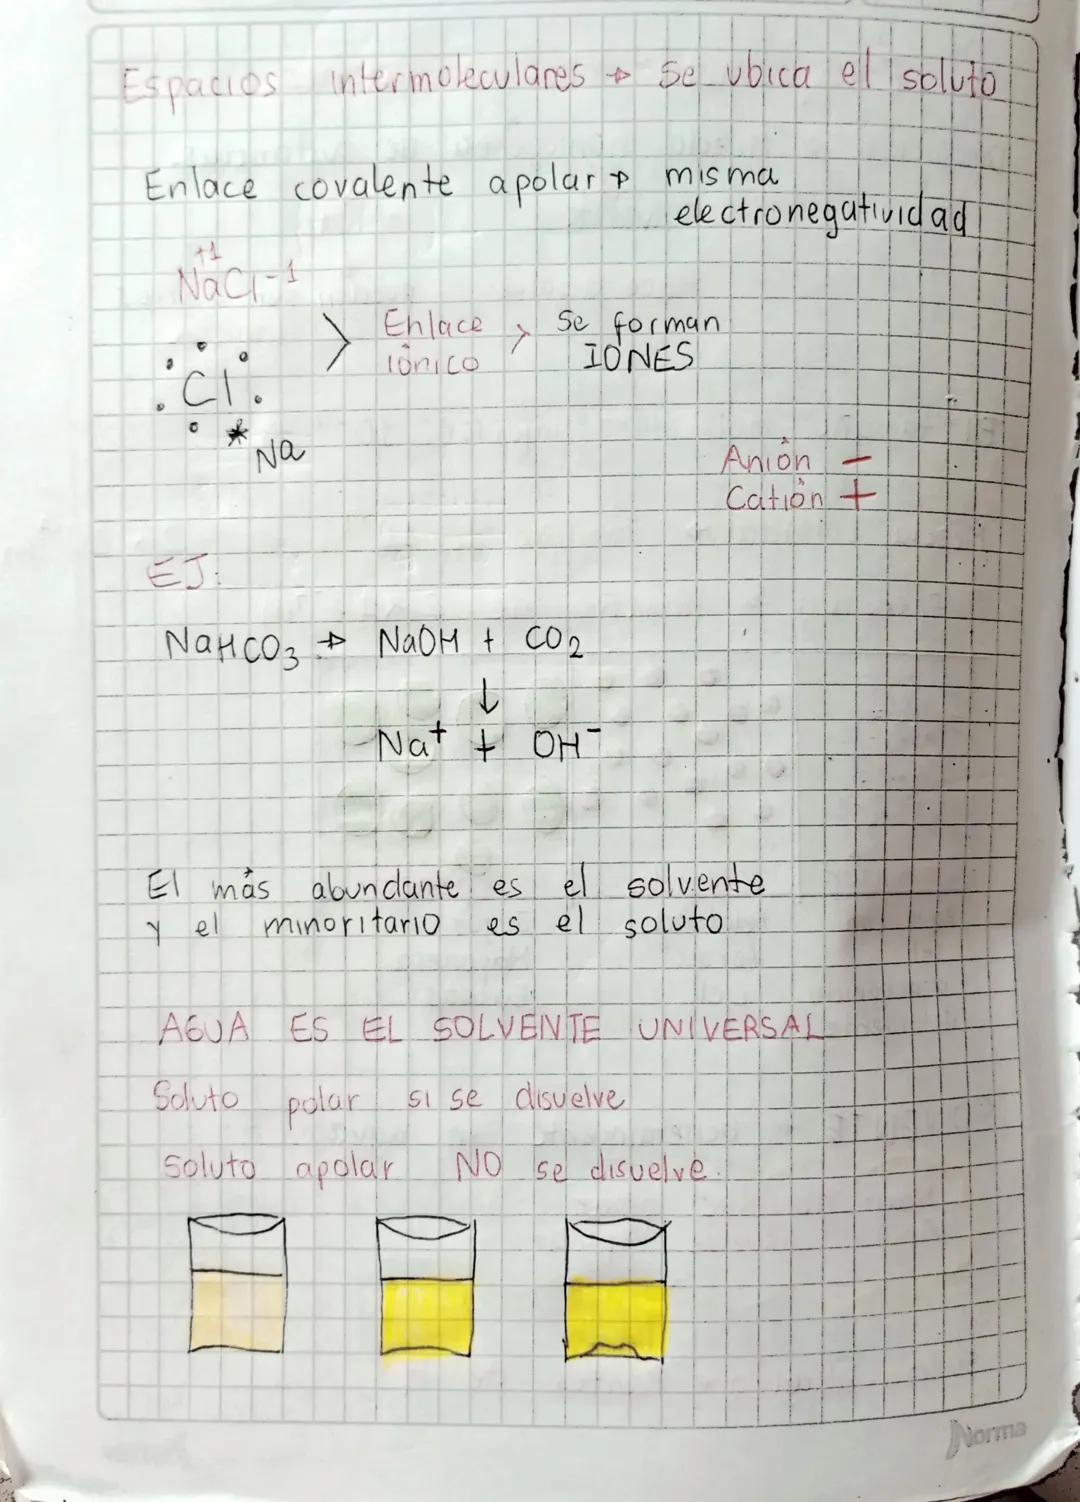 Espacios intermoleculares → se ubica el soluto
Enlace covalente apolar → misma
electronegatividad
+1
NaCl-1
Enlace > Se forman
iónico IONES
Cl
Na
Anión -
Catión +
EJ:
NaHCO3 → NaOH + CO2
↓
Na+ + OH-
El más abundante es el solvente
y el minoritario es el soluto
AGUA ES EL SOLVENTE UNIVERSAL
Soluto polar si se disuelve
soluto apolar NO se disuelve.
Norma